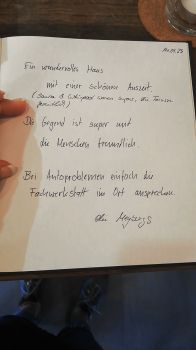 Ein wundervolles Haus
mit einer schönen Auszeit.
(Sauna & Whirlpool waren super, die Terrasse
Die Gegend ist super und
die Menschen freundlich.
Bei Autoproblemen einfach die
Fachwerkstatt im Ort ansprechen.